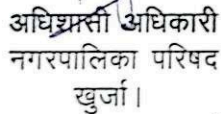 अधिशासी अधिकारी
नगरपालिका परिषद
खुर्जा।